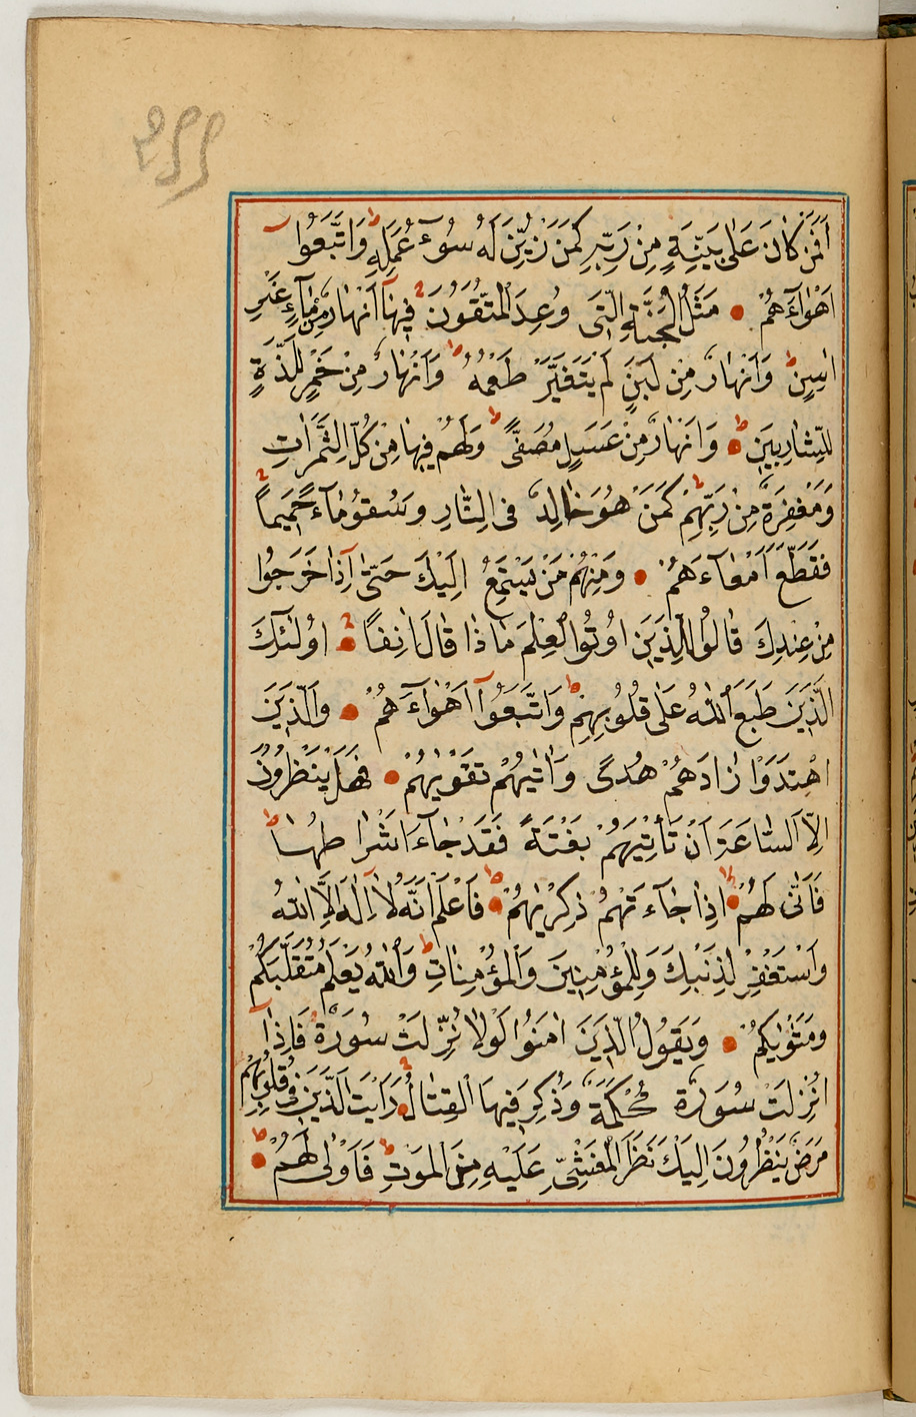 اَفَمَنْ كَانَ عَلٰى بَيِّنَةٍ مِنْ رَبِّهِ كَمَنْ زُيِّنَ لَهُ سُوٓءُ عَمَلِهِ ط وَاتَّبَعُوٓا
اَهْوَآءَهُمْ ● مَثَلُ الْجَنَّةِ الَّتِى وُعِدَ الْمُتَّقُونَ فِيهَآ اَنْهَارٌ مِنْ مَآءٍ غَيْرِ
اٰسِنٍ ط وَاَنْهَارٌ مِنْ لَبَنٍ لَمْ يَتَغَيَّرْ طَعْمُهُ ط وَاَنْهَارٌ مِنْ خَمْرٍ لَذَّةٍ
لِلشَّارِبِينَ ط ● وَاَنْهَارٌ مِنْ عَسَلٍ مُصَفًّى ط وَلَهُمْ فِيهَا مِنْ كُلِّ الثَّمَرَاتِ
وَمَغْفِرَةٌ مِنْ رَبِّهِمْ ط كَمَنْ هُوَ خَالِدٌ فِى النَّارِ وَسُقُوا مَآءً حَمِيمًا
فَقَطَّعَ اَمْعَآءَهُمْ ● وَمِنْهُمْ مَنْ يَسْتَمِعُ اِلَيْكَ حَتّٰىٓ اِذَا خَرَجُوا
مِنْ عِنْدِكَ قَالُوا لِلَّذِينَ اُوتُوا الْعِلْمَ مَاذَا قَالَ اٰنِفًا ● اُولٰٓئِكَ
الَّذِينَ طَبَعَ اللّٰهُ عَلٰى قُلُوبِهِمْ ط وَاتَّبَعُوٓا اَهْوَآءَهُمْ ● وَالَّذِينَ
اهْتَدَوْا زَادَهُمْ هُدًى وَاٰتٰيهُمْ تَقْوٰيهُمْ ● فَهَلْ يَنْظُرُونَ
اِلَّا السَّاعَةَ اَنْ تَأْتِيَهُمْ بَغْتَةً فَقَدْ جَآءَ اَشْرَاطُهَا ط
فَاَنّٰى لَهُمْ ● اِذَا جَآءَتْهُمْ ذِكْرٰيهُمْ ط ● فَاعْلَمْ اَنَّهُ لَآ اِلٰهَ اِلَّا اللّٰهُ
وَاسْتَغْفِرْ لِذَنْبِكَ وَلِلْمُؤْمِنِينَ وَالْمُؤْمِنَاتِ ط وَاللّٰهُ يَعْلَمُ مُتَقَلَّبَكُمْ
وَمَثْوٰيكُمْ ● وَيَقُولُ الَّذِينَ اٰمَنُوا لَوْلَا نُزِّلَتْ سُورَةٌ فَاِذَآ
اُنْزِلَتْ سُورَةٌ مُحْكَمَةٌ وَذُكِرَ فِيهَا الْقِتَالُ ● رَاَيْتَ الَّذِينَ فِى قُلُوبِهِمْ
مَرَضٌ يَنْظُرُونَ اِلَيْكَ نَظَرَ الْمَغْشِىِّ عَلَيْهِ مِنَ الْمَوْتِ ط فَاَوْلٰى لَهُمْ ط ●